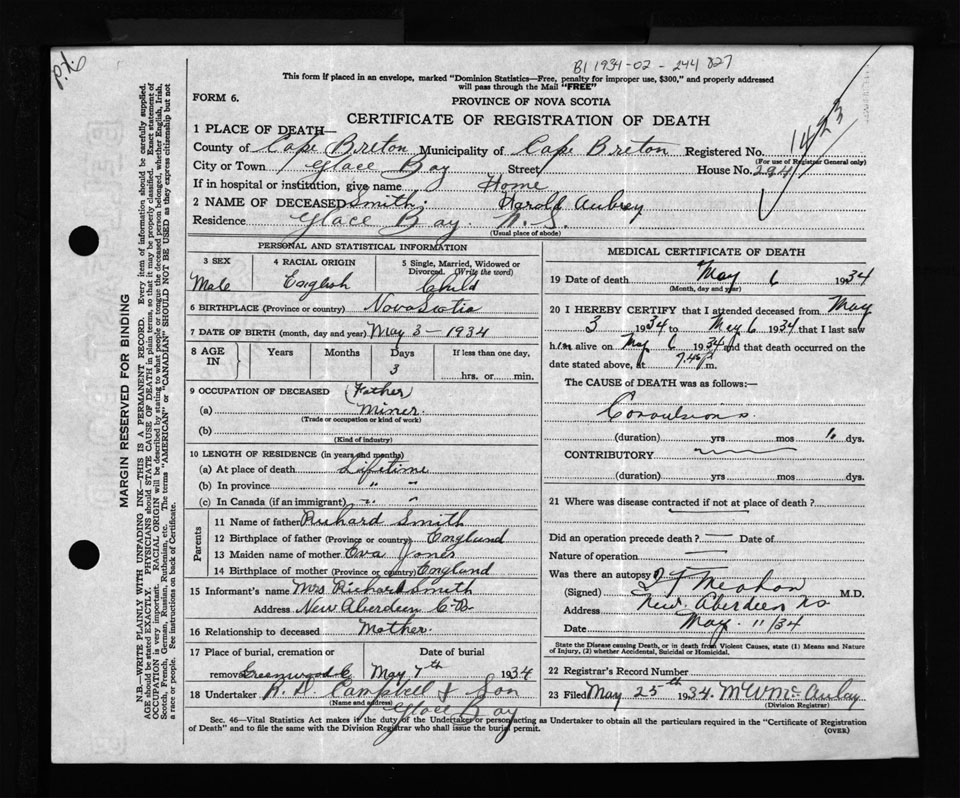 B1 1934-02-244827
This form if placed in an envelope, marked "Dominion Statistics—Free, penalty for improper use, $300," and properly addressed
will pass through the Mail "FREE"
FORM 6.
PROVINCE OF NOVA SCOTIA
CERTIFICATE OF REGISTRATION OF DEATH
1423
1 PLACE OF DEATH—
County of Cape Breton Municipality of Cape Breton Registered No.
(For use of Registrar General only)
City or Town Glace Bay Street House No. 294
If in hospital or institution, give name Home
2 NAME OF DECEASED Smith: Harold Aubrey
Residence Glace Bay N.S.
(Usual place of abode)
PERSONAL AND STATISTICAL INFORMATION
3 SEX
Male
4 RACIAL ORIGIN
English
5 Single, Married, Widowed or
Divorced. (Write the word)
Child
6 BIRTHPLACE (Province or country) Nova Scotia
7 DATE OF BIRTH (month, day and year) May 3 - 1934
8 AGE IN
Years Months Days If less than one day,
3 hrs. or min.
9 OCCUPATION OF DECEASED (Father)
(a) Miner.
(Trade or occupation or kind of work)
(b)
(Kind of industry)
10 LENGTH OF RESIDENCE (in years and months)
(a) At place of death Lifetime
(b) In province " "
(c) In Canada (if an immigrant) " "
Parents
11 Name of father Richard Smith
12 Birthplace of father (Province or country) England
13 Maiden name of mother Eva Jones
14 Birthplace of mother (Province or country) England
15 Informant's name Mrs Richard Smith
Address New Aberdeen C.B.
16 Relationship to deceased Mother.
17 Place of burial, cremation or Date of burial
removal Greenwood C. May 7th 1934
18 Undertaker A. D. Campbell & Son
(Name and address) Glace Bay
MEDICAL CERTIFICATE OF DEATH
19 Date of death May 6 1934
(Month, day and year)
20 I HEREBY CERTIFY that I attended deceased from May
3 1934 to May 6 1934 that I last saw
him alive on May 6 1934 and that death occurred on the
date stated above, at 7.45 p m.
The CAUSE OF DEATH was as follows:
Convulsions.
(duration) yrs mos 1. dys.
CONTRIBUTORY
(duration) yrs mos dys.
21 Where was disease contracted if not at place of death?
Did an operation precede death? — Date of
Nature of operation —
Was there an autopsy?
(Signed) Meahan M.D.
Address New Aberdeen NS
Date May 11/34
State the Disease causing Death, or in death from Violent Causes, state (1) Means and
Nature of Injury, (2) whether Accidental, Suicidal or Homicidal.
22 Registrar's Record Number
23 Filed May 25th 1934. McAulay
(Division Registrar)
Sec. 46—Vital Statistics Act makes it the duty of the Undertaker or person acting as Undertaker to obtain all the particulars required in the "Certificate of Registration
of Death" and to file the same with the Division Registrar who shall issue the burial permit.
(OVER)
MARGIN RESERVED FOR BINDING
N.B.—WRITE PLAINLY WITH UNFADING INK—THIS IS A PERMANENT RECORD. Every item of information should be carefully supplied.
AGE should be stated EXACTLY. PHYSICIANS should STATE CAUSE OF DEATH in plain terms, so that it may be properly classified. Exact statement of
OCCUPATION is very important. RACIAL ORIGIN will be described by stating to what people or tongue the deceased person belonged, whether English, Irish,
Scotch, French, German, Russian, Ruthenian, etc. The terms "AMERICAN" or "CANADIAN" SHOULD NOT BE USED as they express citizenship but not
a race or people. See instructions on back of Certificate.